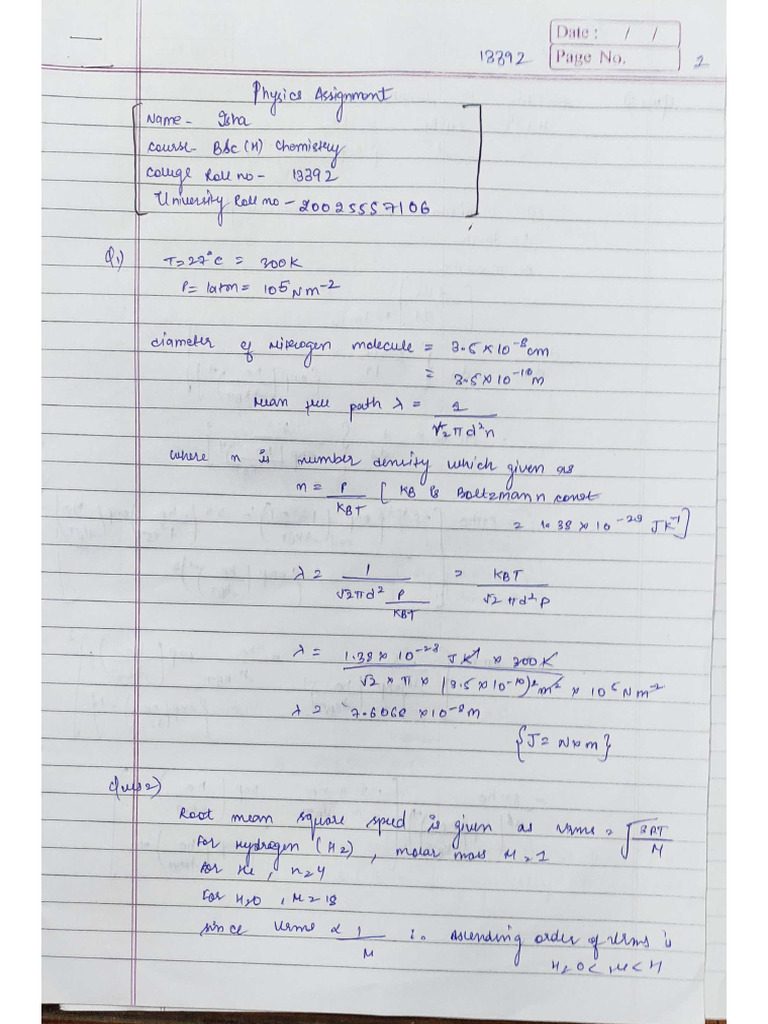 Date : / /
13392 Page No. 2
Physics Assignment
Name - Isha
Course - BSc (H) Chemistry
College Roll no - 13392
University Roll no - 20025557106
Q1) T = 27°C = 300K
P = 1atm = 10⁵ Nm⁻²
diameter of nitrogen molecule = 3.5 × 10⁻⁸ cm
= 3.5 × 10⁻¹⁰ m
Mean free path λ = 1 / √2 π d² n
where n is number density which given as
n = P / KBT [ KB is Boltzmann const
= 1.38 × 10⁻²³ JK⁻¹]
λ = 1 / √2πd² P/KBT = KBT / √2 πd²P
λ = 1.38 × 10⁻²³ JK⁻¹ × 300K / √2 × π × (3.5 × 10⁻¹⁰)² m² × 10⁵ Nm⁻²
λ = 7.6068 × 10⁻⁸ m
{J = N × m}
Ques 2)
Root mean square speed is given as Vrms = √3RT/M
For Hydrogen (H2) , molar mass M = 1
for He , n = 4
For H2O , M = 18
since Vrms α 1/M ∴ Ascending order of Vrms is
H2O < He < H